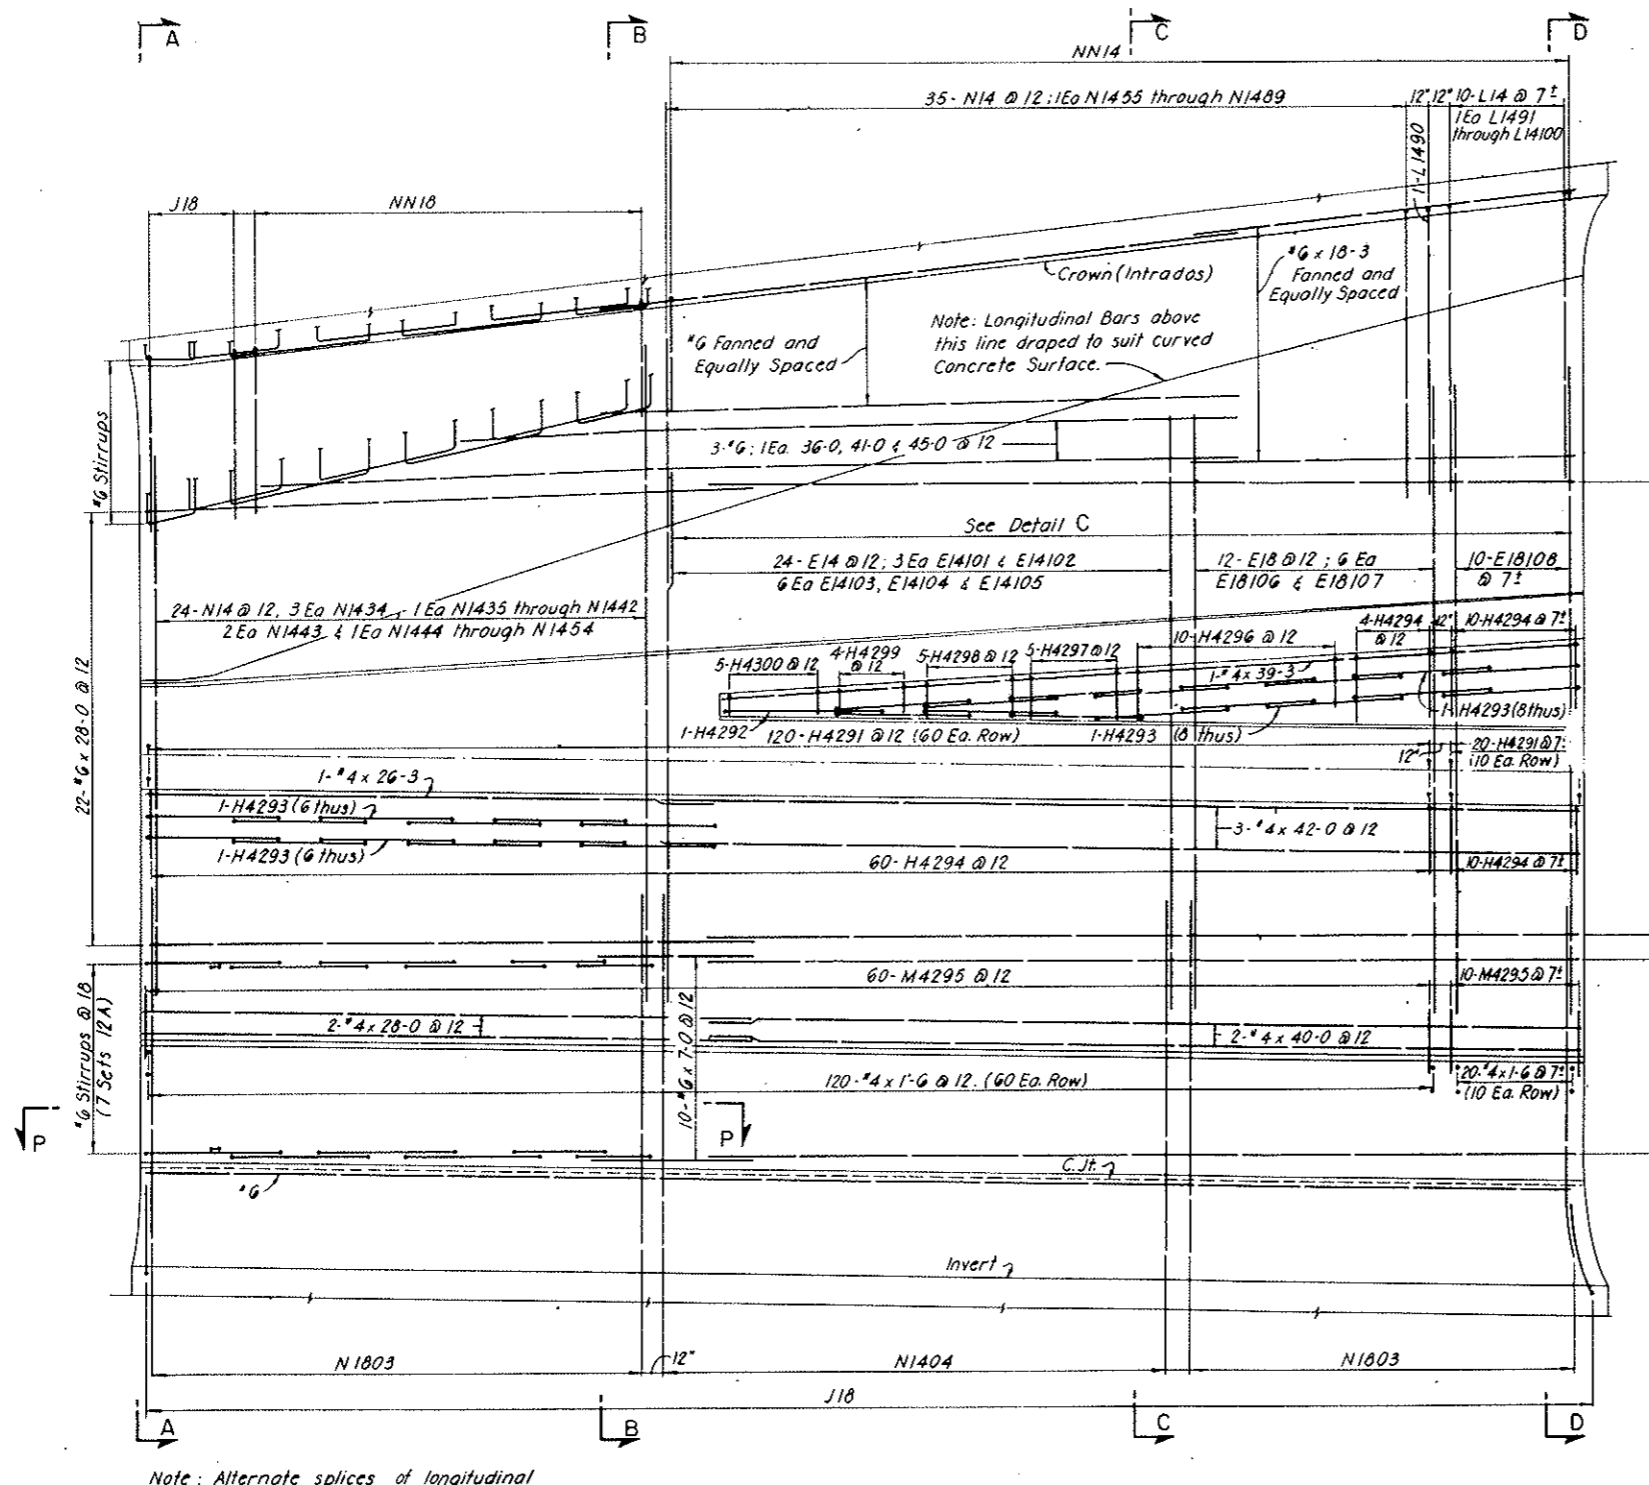 A
B
C
D
NN14
35- N14 @ 12; 1Ea N1455 through N1489
12" 12" 10-L14 @ 7±
1Ea L1491
through L14100
1-L1490
J18
NN18
Crown (Intrados)
#6 x 18-3
Fanned and
Equally Spaced
#6 Fanned and
Equally Spaced
Note: Longitudinal Bars above
this line draped to suit curved
Concrete Surface.
#6 Stirrups
3-#6; 1Ea. 36-0, 41-0 & 45-0 @ 12
See Detail C
24-E14 @ 12; 3 Ea E14101 & E14102
6 Ea E14103, E14104 & E14105
12-E18 @ 12; 6 Ea
E18106 & E18107
10-E18108
@ 7±
24-N14 @ 12, 3 Ea N1434, 1 Ea N1435 through N1442
2 Ea N1443 & 1Ea N1444 through N1454
22-#6 x 28-0 @ 12
5-H4300 @ 12
4-H4299
@ 12
5-H4298 @ 12
5-H4297 @ 12
10-H4296 @ 12
4-H4294
@ 12
12"
10-H4294 @ 7±
1-#4 x 39-3
1-H4292
120-H4291 @ 12 (60 Ea. Row)
1-H4293 (8 thus)
1-H4293 (8 thus)
12"
20-H4291 @ 7±
(10 Ea. Row)
1-#4 x 26-3
1-H4293 (6 thus)
1-H4293 (6 thus)
3-#4 x 42-0 @ 12
60-H4294 @ 12
10-H4294 @ 7±
60-M4295 @ 12
10-M4295 @ 7±
#6 Stirrups @ 18
(7 Sets 12A)
2-#4 x 28-0 @ 12
10-#6 x 7-0 @ 12
2-#4 x 40-0 @ 12
120-#4 x 1-6 @ 12. (60 Ea. Row)
20-#4 x 1-6 @ 7±
(10 Ea. Row)
P
P
C. Jt.
#6
Invert
N1803
12"
N1404
N1803
J18
A
B
C
D
Note: Alternate splices of longitudinal